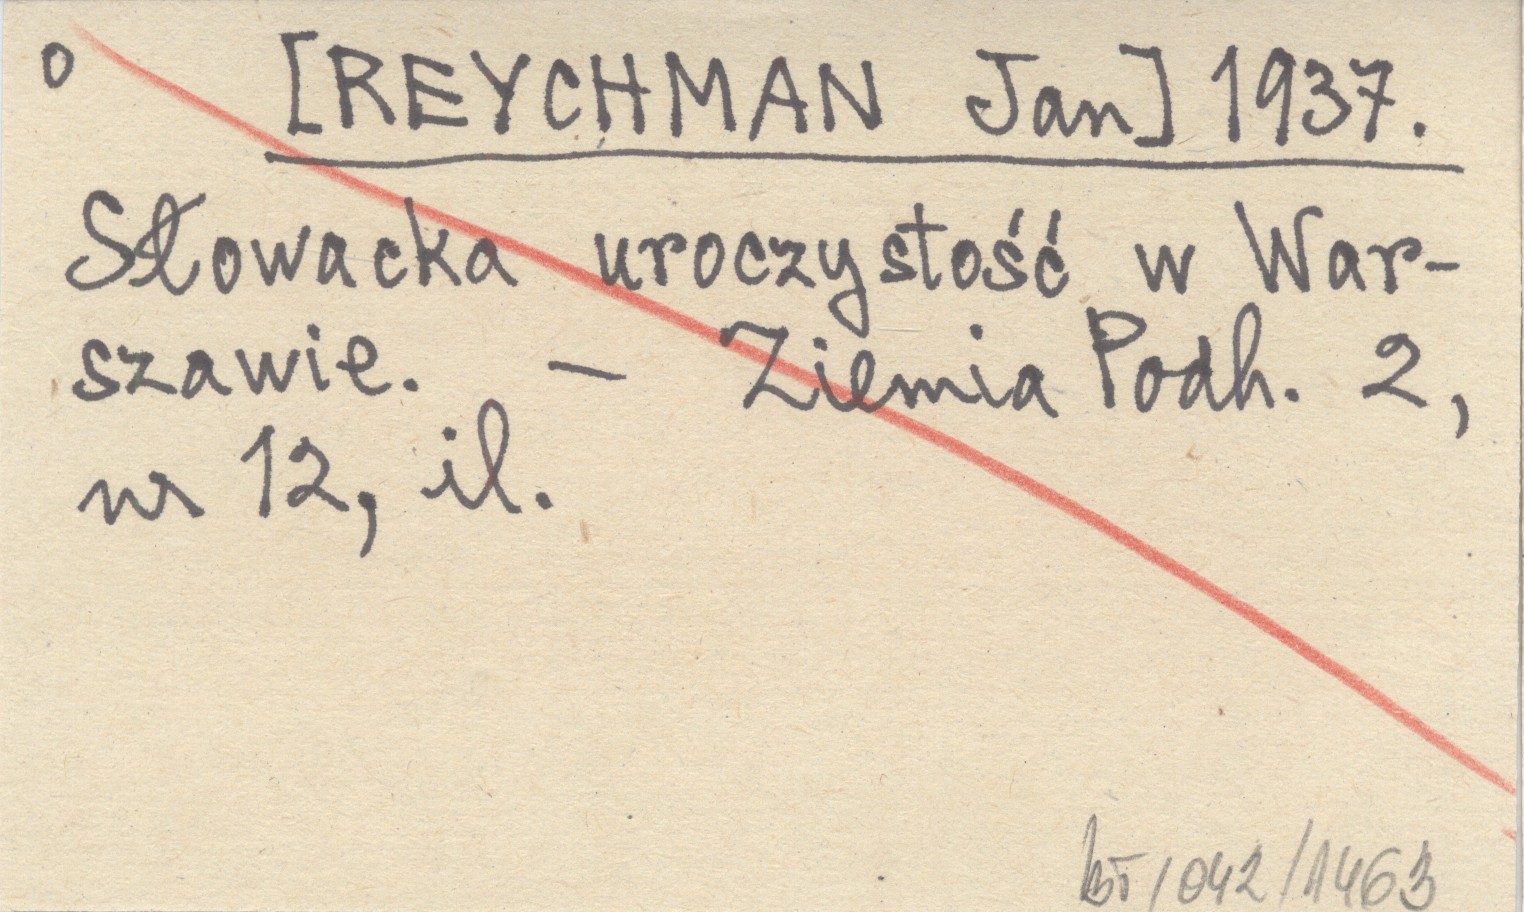 o [REYCHMAN Jan] 1937.
Słowacka uroczystość w War-
szawie. — Ziemia Podh. 2,
nr 12, il.
/042/1463